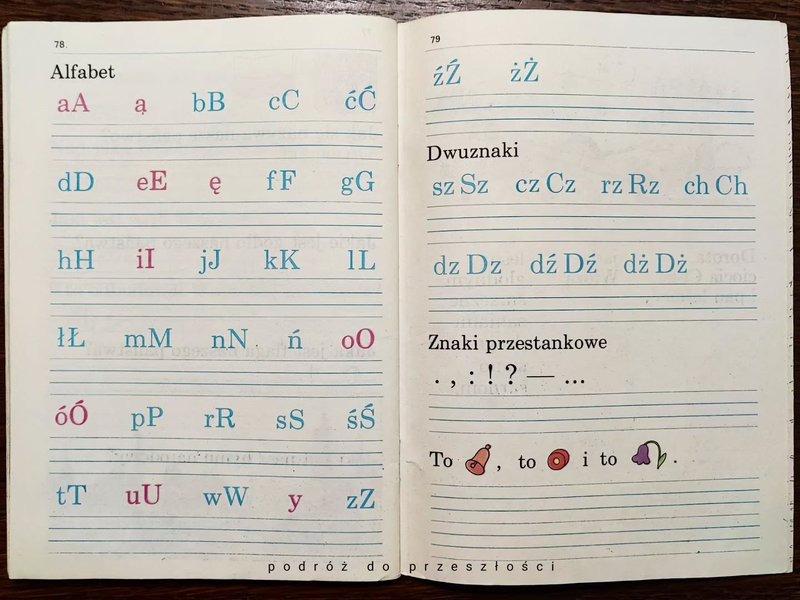 78.
Alfabet
aA ą bB cC ćĆ
dD eE ę fF gG
hH iI jJ kK lL
łŁ mM nN ń oO
óÓ pP rR sS śŚ
tT uU wW y zZ
79
źŹ żŻ
Dwuznaki
sz Sz cz Cz rz Rz ch Ch
dz Dz dź Dź dż Dż
Znaki przestankowe
. , : ! ? — ...
To , to i to .
podróż do przeszłości